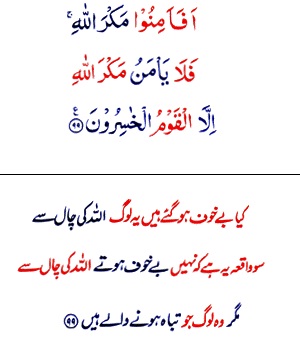 اَفَاَمِنُوْا مَكْرَ اللّٰهِ ۚ
فَلَا يَاْمَنُ مَكْرَ اللّٰهِ
اِلَّا الْقَوْمُ الْخٰسِرُوْنَ ۧ ﴿۹۹﴾
کیا بے خوف ہو گئے ہیں یہ لوگ اللہ کی چال سے
سو واقعہ یہ ہے کہ نہیں بے خوف ہوتے اللہ کی چال سے
مگر وہ لوگ جو تباہ ہونے والے ہیں ﴿۹۹﴾